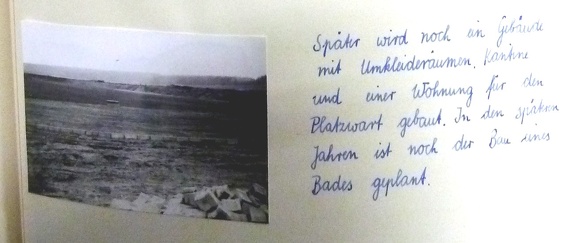 Später wird noch ein Gebäude
mit Umkleideräumen, Kantine
und einer Wohnung für den
Platzwart gebaut. In den späteren
Jahren ist noch der Bau eines
Bades geplant.